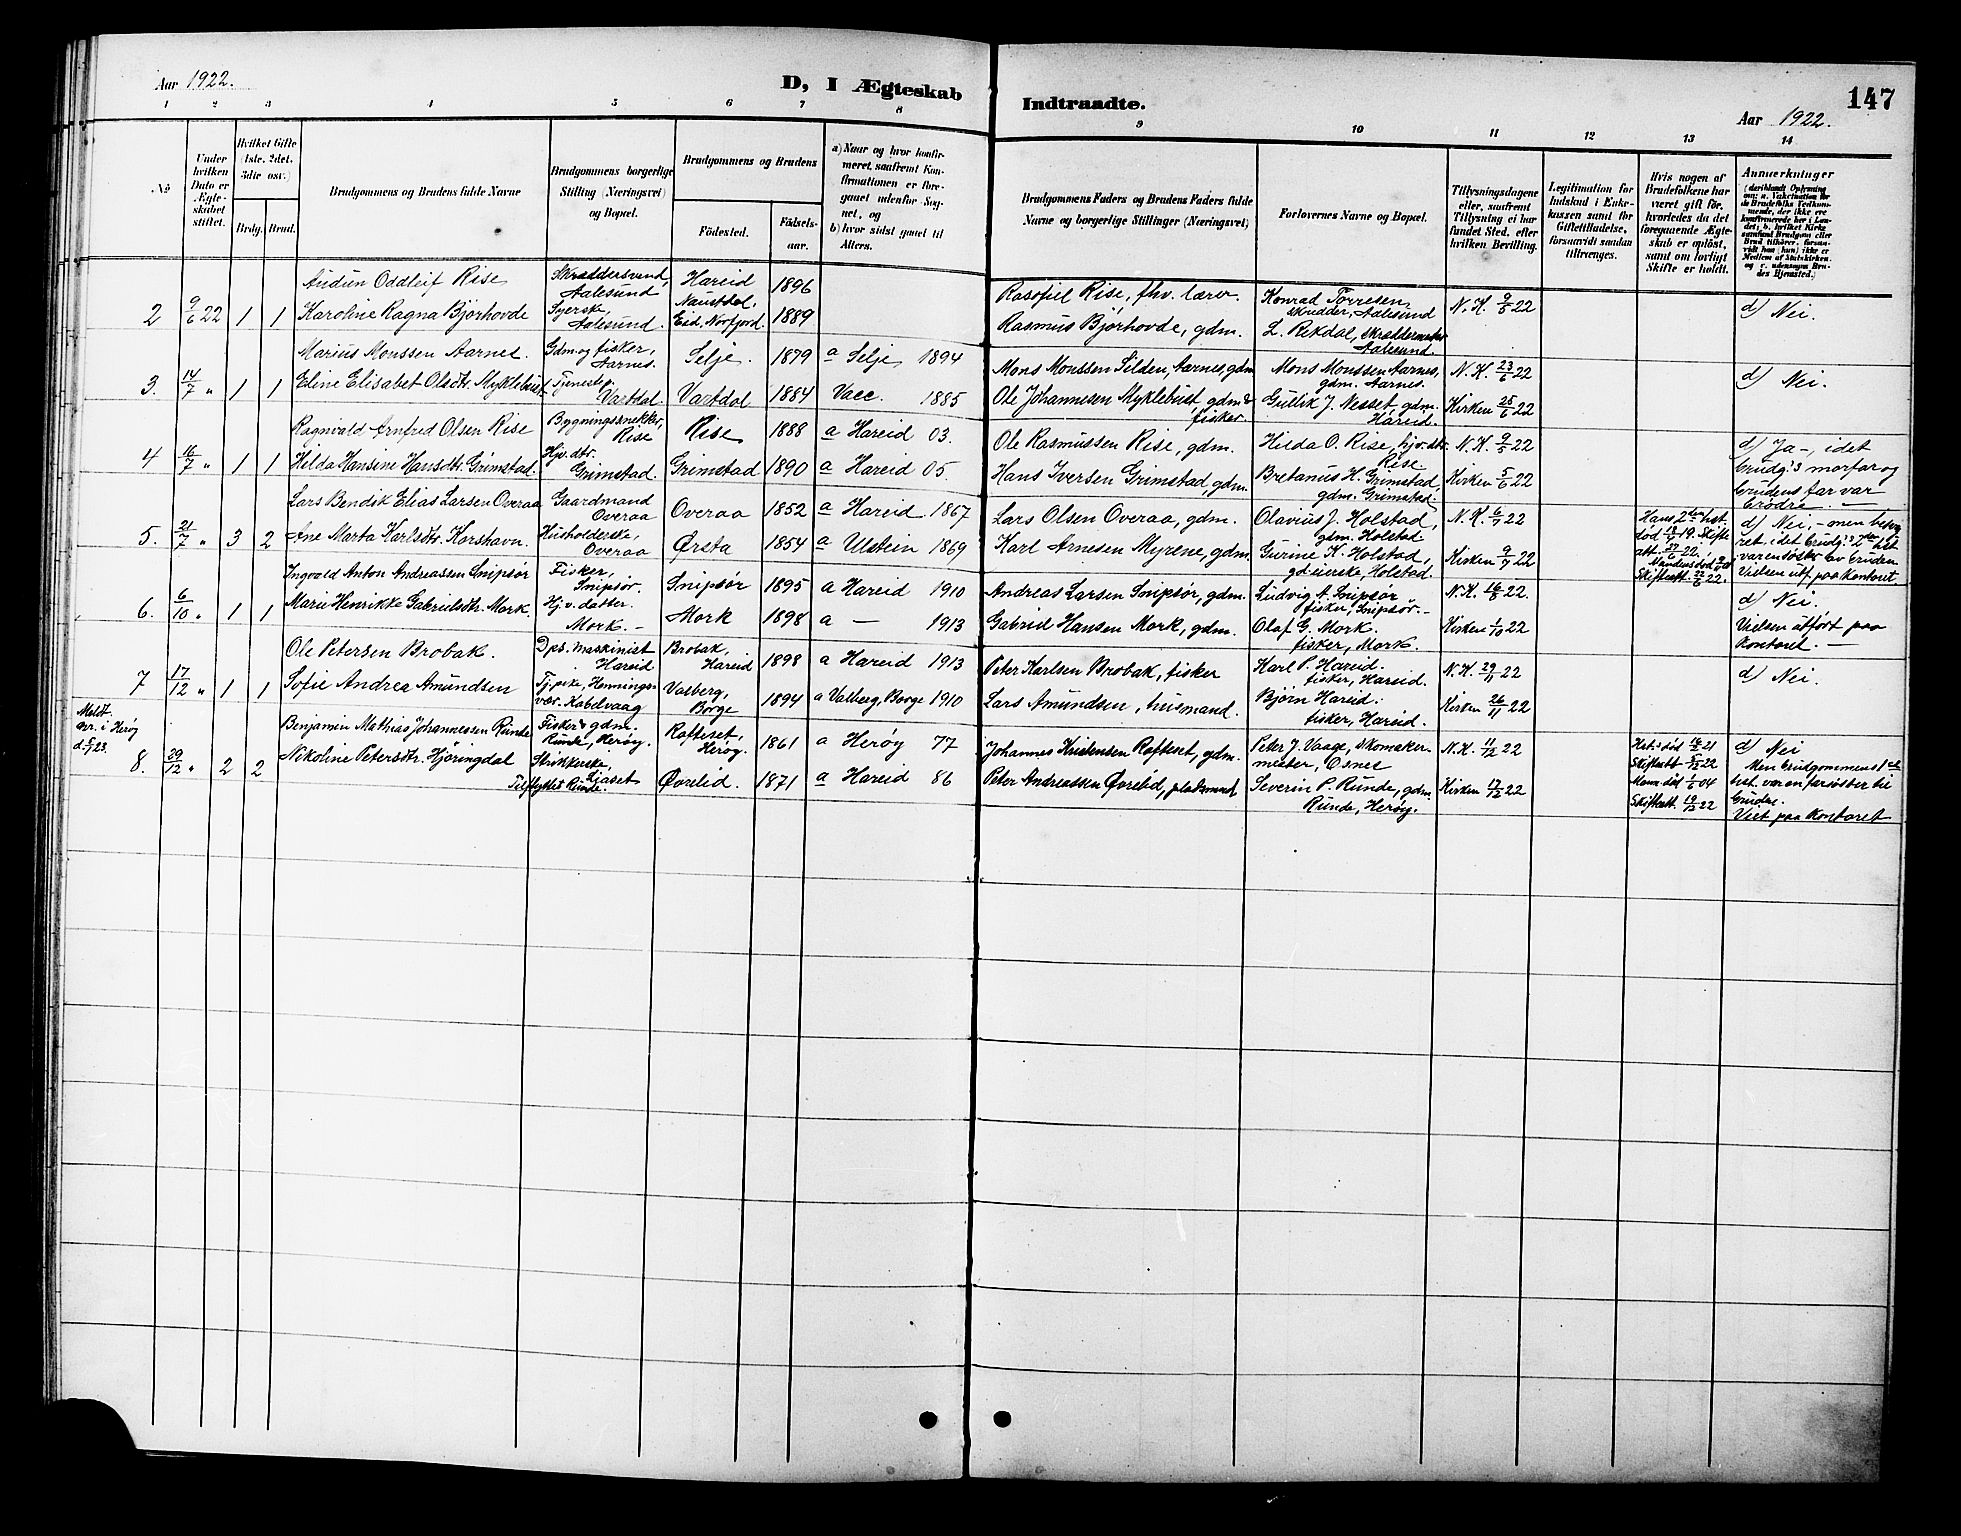 Aar 1922.
D, I Ægteskab
Indtraadte.
147
Aar 1922.
1 2 3 4 5 6 7 8 9 10 11 12 13 14
No
Under hvilken Dato er Ægteskabet stiftet.
Hvilket Gifte (1ste, 2det, 3die osv.)
Brdg. Brud.
Brudgommens og Brudens fulde Navne
Brudgommens borgerlige Stilling (Næringsvei) og Bopæl.
Brudgommens og Brudens
Fødested. Fødsels-aar.
a) Naar og hvor konfirmeret, saafremt Konfirmationen er foregaaet udenfor Sognet, og
b) hvor sidst gaaet til Alters.
Brudgommens Faders og Brudens Faders fulde Navne og borgerlige Stillinger (Næringsvei)
Forlovernes Navne og Bopæl.
Tillysningsdagene eller, saafremt Tillysning ei har fundet Sted, efter hvilken Bevilling.
Legitimation for Indskud i Enkekassen samt for Giftetilladelse, forsaavidt saadan tiltrænges.
Hvis nogen af Brudefolkene har været gift før, hvorledes da det foregaaende Ægteskab er opløst, samt om lovligt Skifte er holdt.
Anmærkninger
Audun Oddleif Rise Skræddersvend, Aalesund Hareid 1896 Rasofiel Rise, fhv. lærer. Konrad Torresen, skrædder, Aalesund N. K. 9/5 22 d) Nei.
2 9/6 22 1 1 Karoline Ragna Bjørhovde Syerske, Aalesund. Naustdal, Eid, Norfjord 1889 Rasmus Bjørhovde, gdm. L. Rekdal, skræddermester Aalesund.
Marius Monssen Aarnes. Gdm. og fisker, Aarnes. Selje 1879 a Selje 1894 Mons Monssen Silden, Aarnes, gdm Mons Monssen Aarnes, gdm. Aarnes. N. K. 23/6 22 d) Nei.
3. 14/7 " 1 1 Eline Elisabet Olsdtr. Myklebust Tjenestep. Vartdal. Vartdal 1884 Vacc. 1885 Ole Johannesen Myklebust gdm & fisker. Gullik J. Nesset, gdm. Hareid. Kirken 25/6 22
Ragnvald Arnfred Olsen Rise Bygningssnekker, Rise Rise 1888 a Hareid 03. Ole Rasmussen Rise, gdm. Hilda O. Rise, hjv. dtr. Rise N. K. 9/5 22 d) Ja -, idet brudg.s morfar og brudens far var brødre. -
4 16/7 " 1 1 Helda Hansine Hansdtr. Grimstad. Hjv. dtr. Grimstad. Grimstad 1890 a Hareid 05. Hans Iversen Grimstad, gdm. Bretanus H. Grimstad, gdm. Grimstad. Kirken 5/6 22
Lars Bendik Elias Larsen Overaa Gaardmand Overaa Overaa 1852 a Hareid 1867 Lars Olsen Overaa, gdm. Olavius J. Holstad, gdm. Holstad N. K. 6/7 22
5. 21/7 " 3 2 Ane Marta Karlsdtr. Korshavn. Husholderske, Overaa Ørsta 1854 a Ulstein 1869 Karl Arnesen Myrene, gdm. Gurine K. Holstad, gdeierske, Holstad. Kirken 9/7 22 Vielsen utf. paa kontoret
Ingvald Anton Andreassen Snipsør Fisker, Snipsør. Snipsør 1895 a Hareid 1910 Andreas Larsen Snipsør, gdm. Ludvig A. Snipsør fisker, Snipsør. - N. K. 16/8 22. d) Nei.
6. 6/10 " 1 1 Marie Henrikke Gabrielsdtr. Mork. Hjv. datter Mork. - Mork 1898 a - 1913 Gabriel Hansen Mork, gdm. Olaf G. Mork. fisker, Mork. Kirken 1/10 22 Vielsen utført paa kontoret. -
Ole Petersen Brobak. Dps. maskinist Hareid Brobak, Hareid 1898 a Hareid 1913 Peter Karlsen Brobak, fisker Karl P. Hareid. fisker, Hareid. N. K. 29/11 22 d) Nei.
7 17/12 " 1 1 Sofie Andrea Amundsen Tj.pike, Henningsvær. Kabelvaag Valberg, Borge 1894 a Valberg, Borge 1910 Lars Amundsen, husmand. Bjørn Hareid. fisker, Hareid. Kirken 26/11 22
Meldt. i Herøy d. 5/1 23.
Benjamin Mathias Johannessen Runde Fisker & gdm. Runde, Herøy. Rafteset, Herøy. 1861 a Herøy 77 Johannes Kristensen Rafteset, gdm. Peter J. Vaage, skomakermester, Osnes N. K. 11/12 22 d) Nei
8. 29/12 " 2 2 Nikoline Petersdtr. Hjøringdal Strikkerske, Liaset Tilflyttes Runde. Øvrelid. 1871 a Hareid 86 Peter Andreassen Øvrelid, pladsmand Severin P. Runde, gdm. Runde, Herøy. Kirken 17/12 22 Men brudgommens 1ste hst. var en farsøster til bruden. Viet paa kontoret